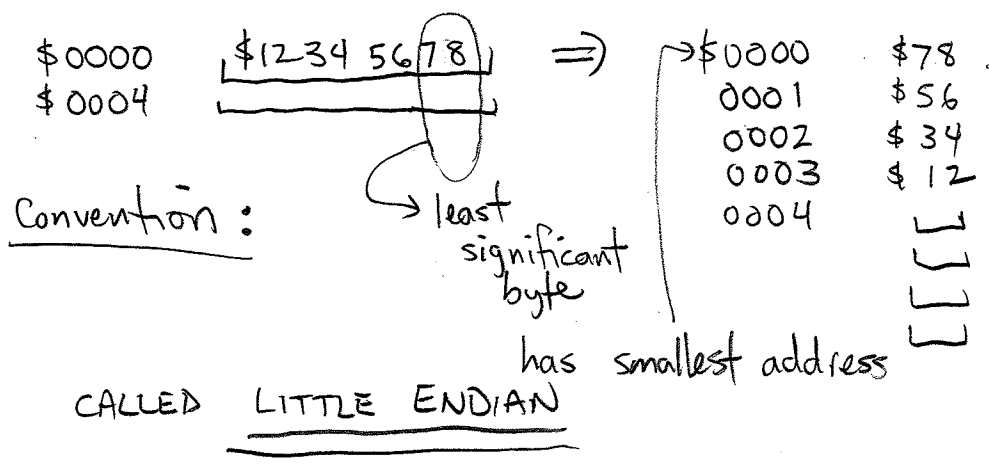 $0000 $12 34 56 78 ⇒ $0000 $78
$0004 0001 $56
0002 $34
0003 $12
0004
Convention:
least
significant
byte
has smallest address
CALLED LITTLE ENDIAN